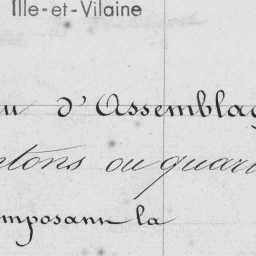 Ille-et-Vilaine
au d'Assemblag
ntons ou quart
omposant la